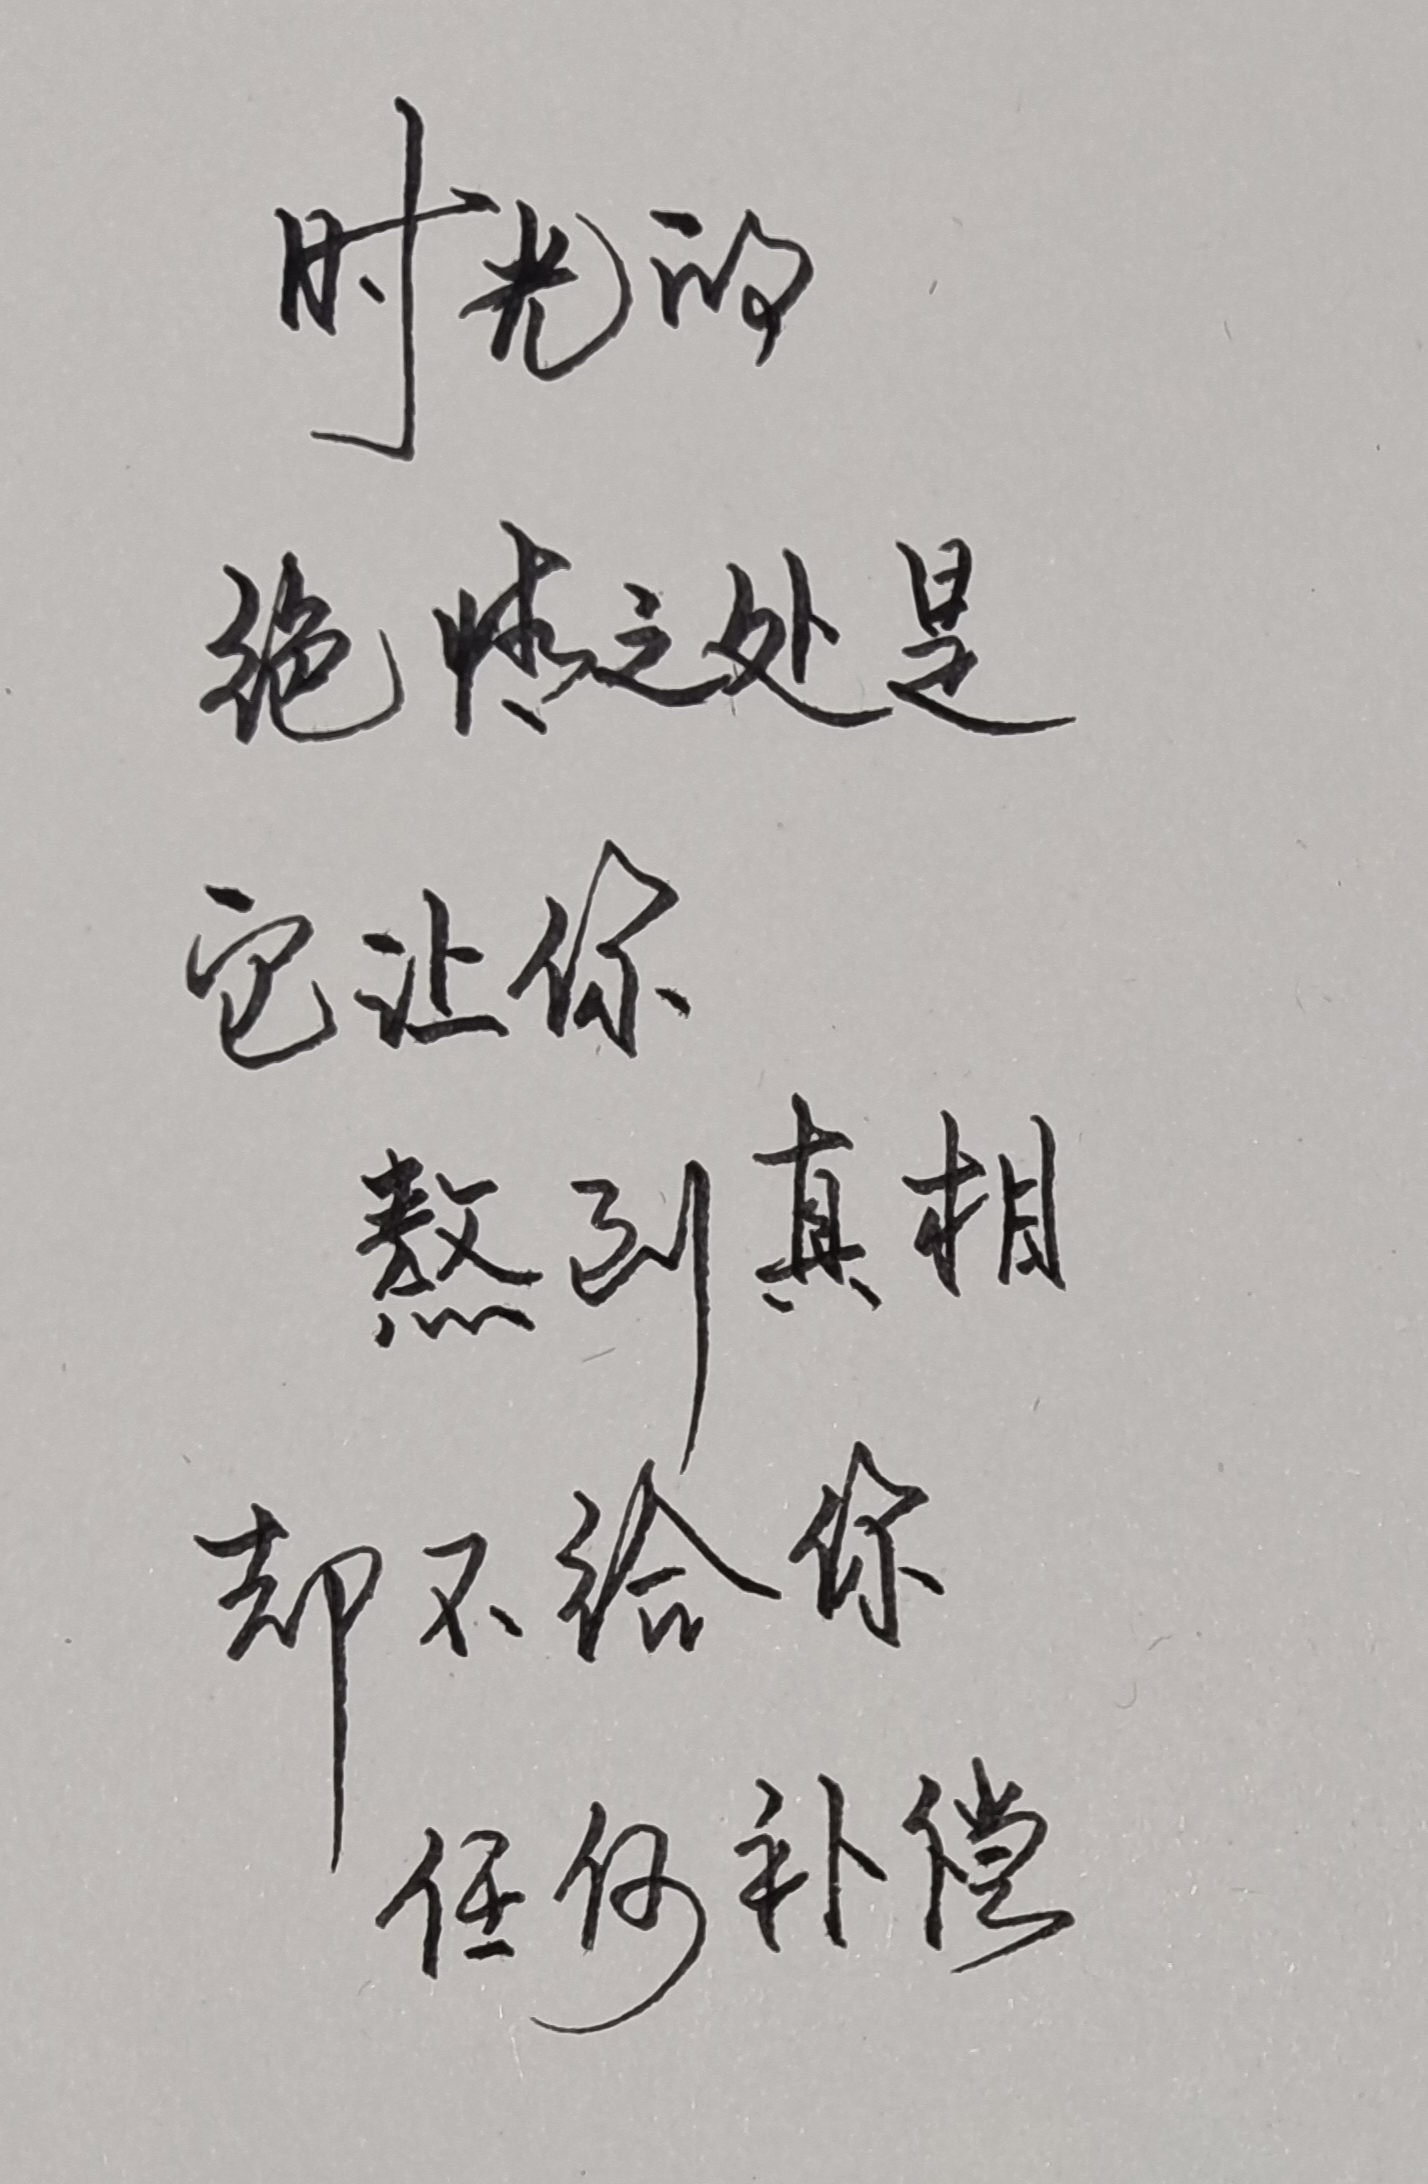 时光的
绝情之处是
它让你
熬到真相
却不给你
任何补偿